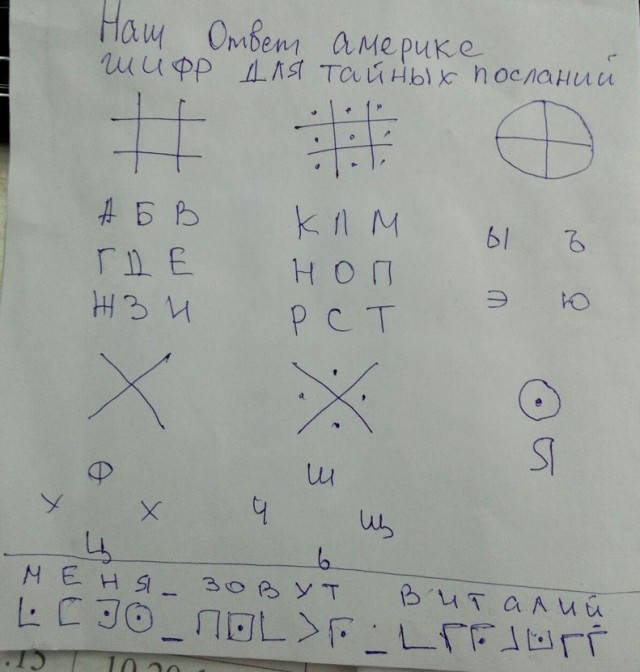 Наш Ответ америке
шифр для тайных посланий
А Б В
Г Д Е
Ж З И
К Л М
Н О П
Р С Т
Ы Ъ
Э Ю
Ф
Х Х
Ц
Ш
Ч Щ
Ь
Я
МЕНЯ_ ЗОВУТ ВИТАЛИЙ
.15 10.20